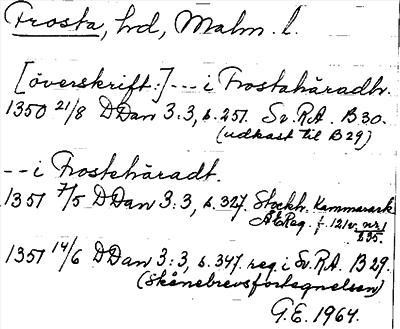 Frosta, hrd, Malm. l.
[överskrift:] --- i Frostahäradh.
1350 21/8 DDan 3:3, s. 251. Sv. R.A. B 30.
(udkast til B 29)
-- i Frostehäradt.
1351 7/5 DDan 3:3, s. 327. Stockh. Kammarark
ÄtReg. f. 121v. nr 1
1351 14/6 DDan 3:3, s. 347. reg. i Sv. R.A. B 29.
(Skånebrevsfortegnelsen)
G.E. 1964.